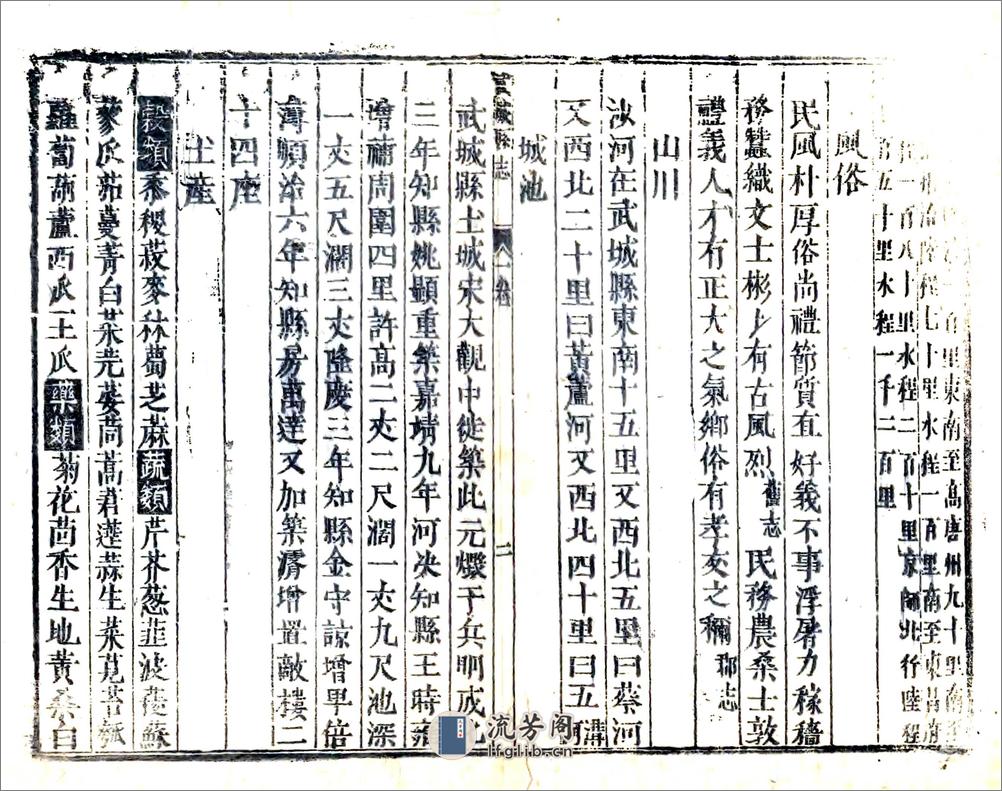 百里東南至高唐州九十里南至
陸程七十里水程一百里南至東昌府
一百八十里水程二百十里京師北行陸程
百五十里水程一千二百里
風俗
民風朴厚俗尚禮節質直好義不事浮屠力稼穡
務蠶織文士彬彬有古風烈舊志民務農桑士敦
禮義人才有正大之氣鄉俗有孝友之稱郡志
山川
沙河在武城縣東南十五里又西北五里曰蔡河
又西北二十里曰黃蘆河又西北四十里曰五溝河
城池
武城縣志 卷一 二
武城縣土城宋大觀中徙築此元燬于兵明成化
三年知縣姚顯重築嘉靖九年河決知縣王時
增補周圍四里許高二丈二尺濶一丈九尺池深
一丈五尺濶三丈隆慶三年知縣金守諒增卑倍
薄順治六年知縣房萬達又加築濬增置敵樓二
十四座
土產
穀類黍稷菽麥秫蔔芝蔴蔬類芹芥葱韭波薐蘇
蔘瓜茄蔓菁白菜芫荽茼蒿莙薘蒜生菜莧苦瓠
蘿蔔葫蘆西瓜王瓜藥類菊花茴香生地黃桑白
流芳阁
lfglib.cn